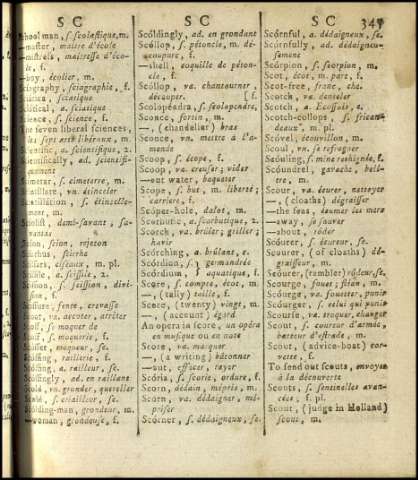 SC SC SC 347
School man, s. scolastique, m.
—master, maitre d'école
—mistress, maitresse d'école, f.
—boy, écolier, m.
Sciagraphy, sciagraphie, f.
Sciatica, sciatique
Sciatical, a. sciatique
Science, s. science, f.
The seven liberal sciences,
les sept arts libéraux, m.
Scientific, a. scientifique, 2.
Scientifically, ad. scientifiquement
Scimetar, s. cimeterre, m.
Scintillate, vn. étinceler
Scintillation, s. étincellement, m.
Sciolist, demi-savant,
Scion, scion, rejeton
Scirrhus, scirrhe
Scissars, ciseaux, m. pl.
Scissile, a. scissile, 2.
Scission, s. scission, division, f.
Scissure, fente, crevasse
Scoat, va. accoter, arrêter
Scoff, se moquer de
Scoff, moquerie, f.
Scoffer, moqueur, se.
Scoffing, raillerie, f.
Scoffing, a. railleur, se.
Scoffingly, ad. en raillant
Scold, va. gronder, quereller
Scold, s. criailleur, se.
Scolding, criaillerie, f.
Scolding-man, grondeur, m.
—woman, grondeuse, f.
Scoldingly, ad. en grondant
Scollop, s. pétoncle, m. découpure, f.
—shell, coquille de pétoncle, f.
Scollop, va. chantourner, découper. [f.
Scolopendra, s. scolopendre,
Sconce, fortin, m.
—, (chandelier) bras
Sconce, vn. mettre à l'amende
Scoop, s. écope, f.
Scoop, va. creuser; vider
—out water, baqueter
Scope, s. but, m. liberté; carriere, f.
Scoper-hole, dalot, m.
Scorbutic, a. scorbutique, 2.
Scorch, va. brûler; griller; havir
Scorching, a. brûlant, e.
Scordion, s. germandrée
Scordium, aquatique, f.
Score, s. compte, écot, m.
—, (tally) taille, f.
Score, (twenty) vingt, m.
—, (account) égard
An opera in score, un opéra
en musique ou en note
Score, va. marquer
—, (a writing) bâtonner
—out, effacer, rayer
Scoria, s. scorie, ordure, f.
Scorn, dédain, mépris, m.
Scorn, va. dédaigner, mépriser
Scorner, s. dédaigneux, se.
Scornful, a. dédaigneux, se.
Scornfully, ad. dédaigneusement
Scorpion, s. scorpion, m.
Scot, écot, m. part, f.
Scot-free, franc, che.
Scotch, va. denteler
Scotch, a. Ecossois, e.
Scotch-collops, s. fricandeaux, m. pl.
Scovel, écouvillon, m.
Scoul, vn. se refrogner
Scouling, s. mine refrognée, f.
Scoundrel, gavache, belître, m.
Scour, va. écurer, nettoyer
—, (cloaths) dégraisser
—the seas, écumer les mers
—away, se sauver
—about, rôder
Scourer, s. écureur, se.
Scourer, (of cloaths) dégraisseur, m.
Scourer, (rambler) rôdeur, se.
Scourge, fouet; fléau, m.
Scourge, va. fouetter, punir
Scourger, s. celui qui punit
Scourse, va. troquer, changer
Scout, s. coureur d'armée, batteur d'estrade, m.
Scout, (advice-boat) corvette, f.
To send out scouts, envoyer
à la découverte
Scouts, s. sentinelles avancées, f. pl.
Scout, (judge in Holland)
scout, m.